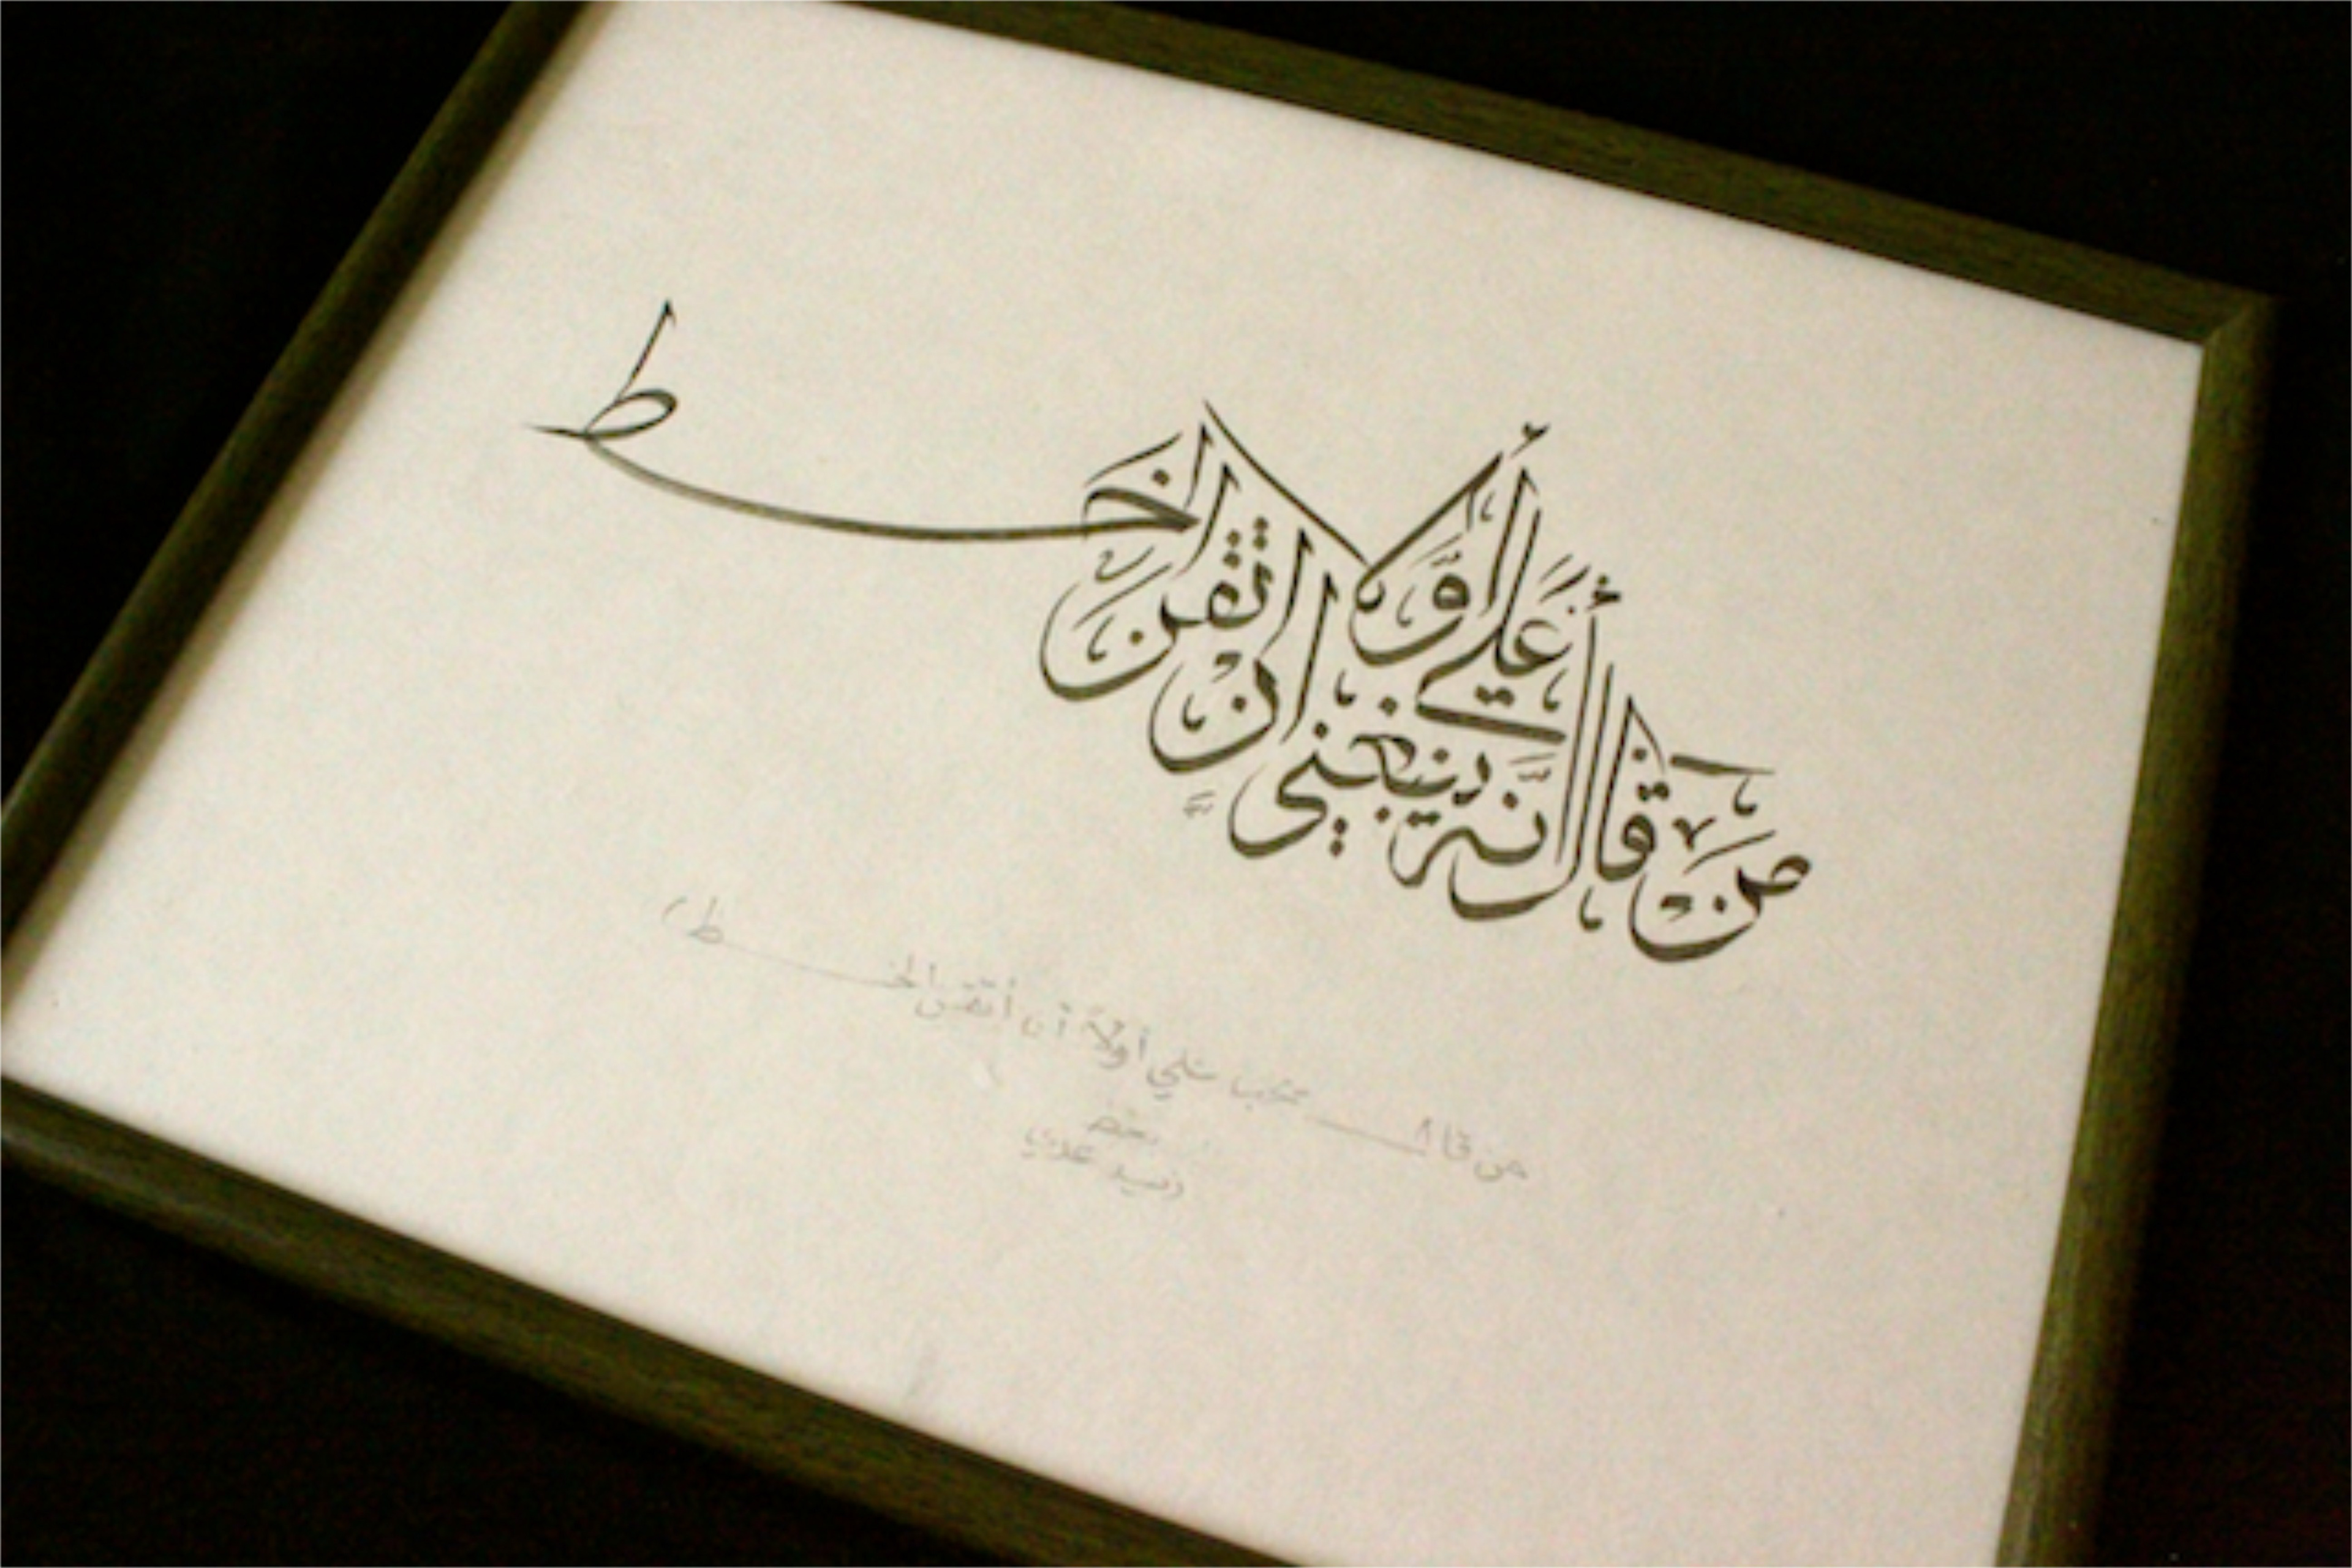 من قال أنه ينبغي علي أولا ان اتقن الخط
من قال يجب علي أولاً أن أتقن الخط